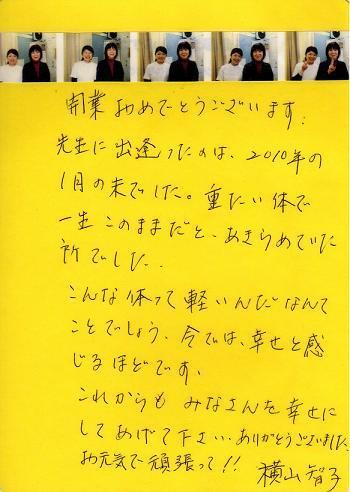 開業おめでとうございます.
先生に出逢ったのは、2010年の
1月の末でした。重たい体で
一生このままだと、あきらめていた
所でした..
こんな体って軽いんだなんて
ことでしょう、今では、幸せと感
じるほどです、
これからも みなさんを幸せに
してあげて下さい..ありがとうございました.
お元気で頑張って!!
横山智子